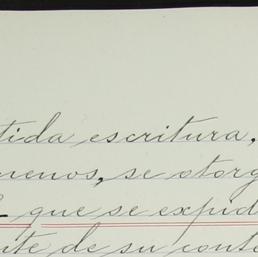 tida escritura,
menos, se otorg
que se expid
nte de su conte